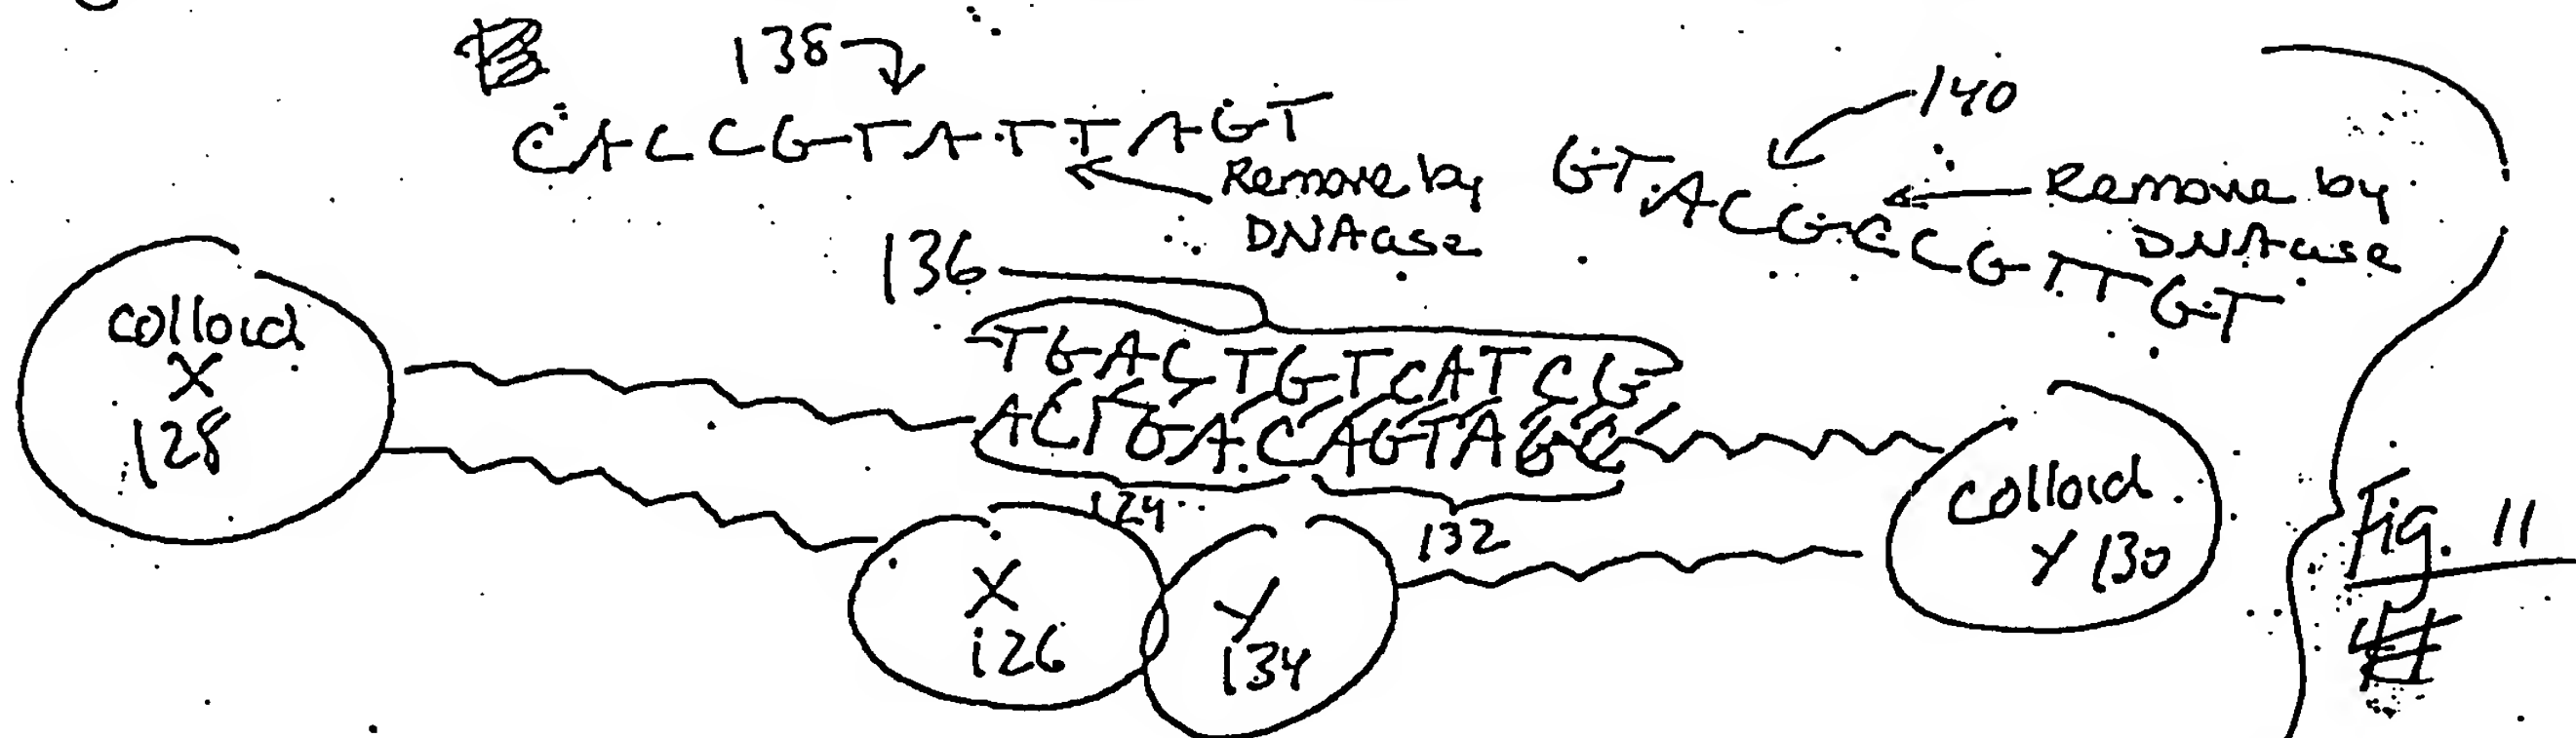 138
CACCGTATTAGT
Remove by
DNAase
140
GTACGCCGTTGT
Remove by
DNAase
136
TGACTGTCATCG
ACTGACAGTAGC
124
132
colloid
X
128
X
126
Y
134
colloid
Y 130
Fig. 11